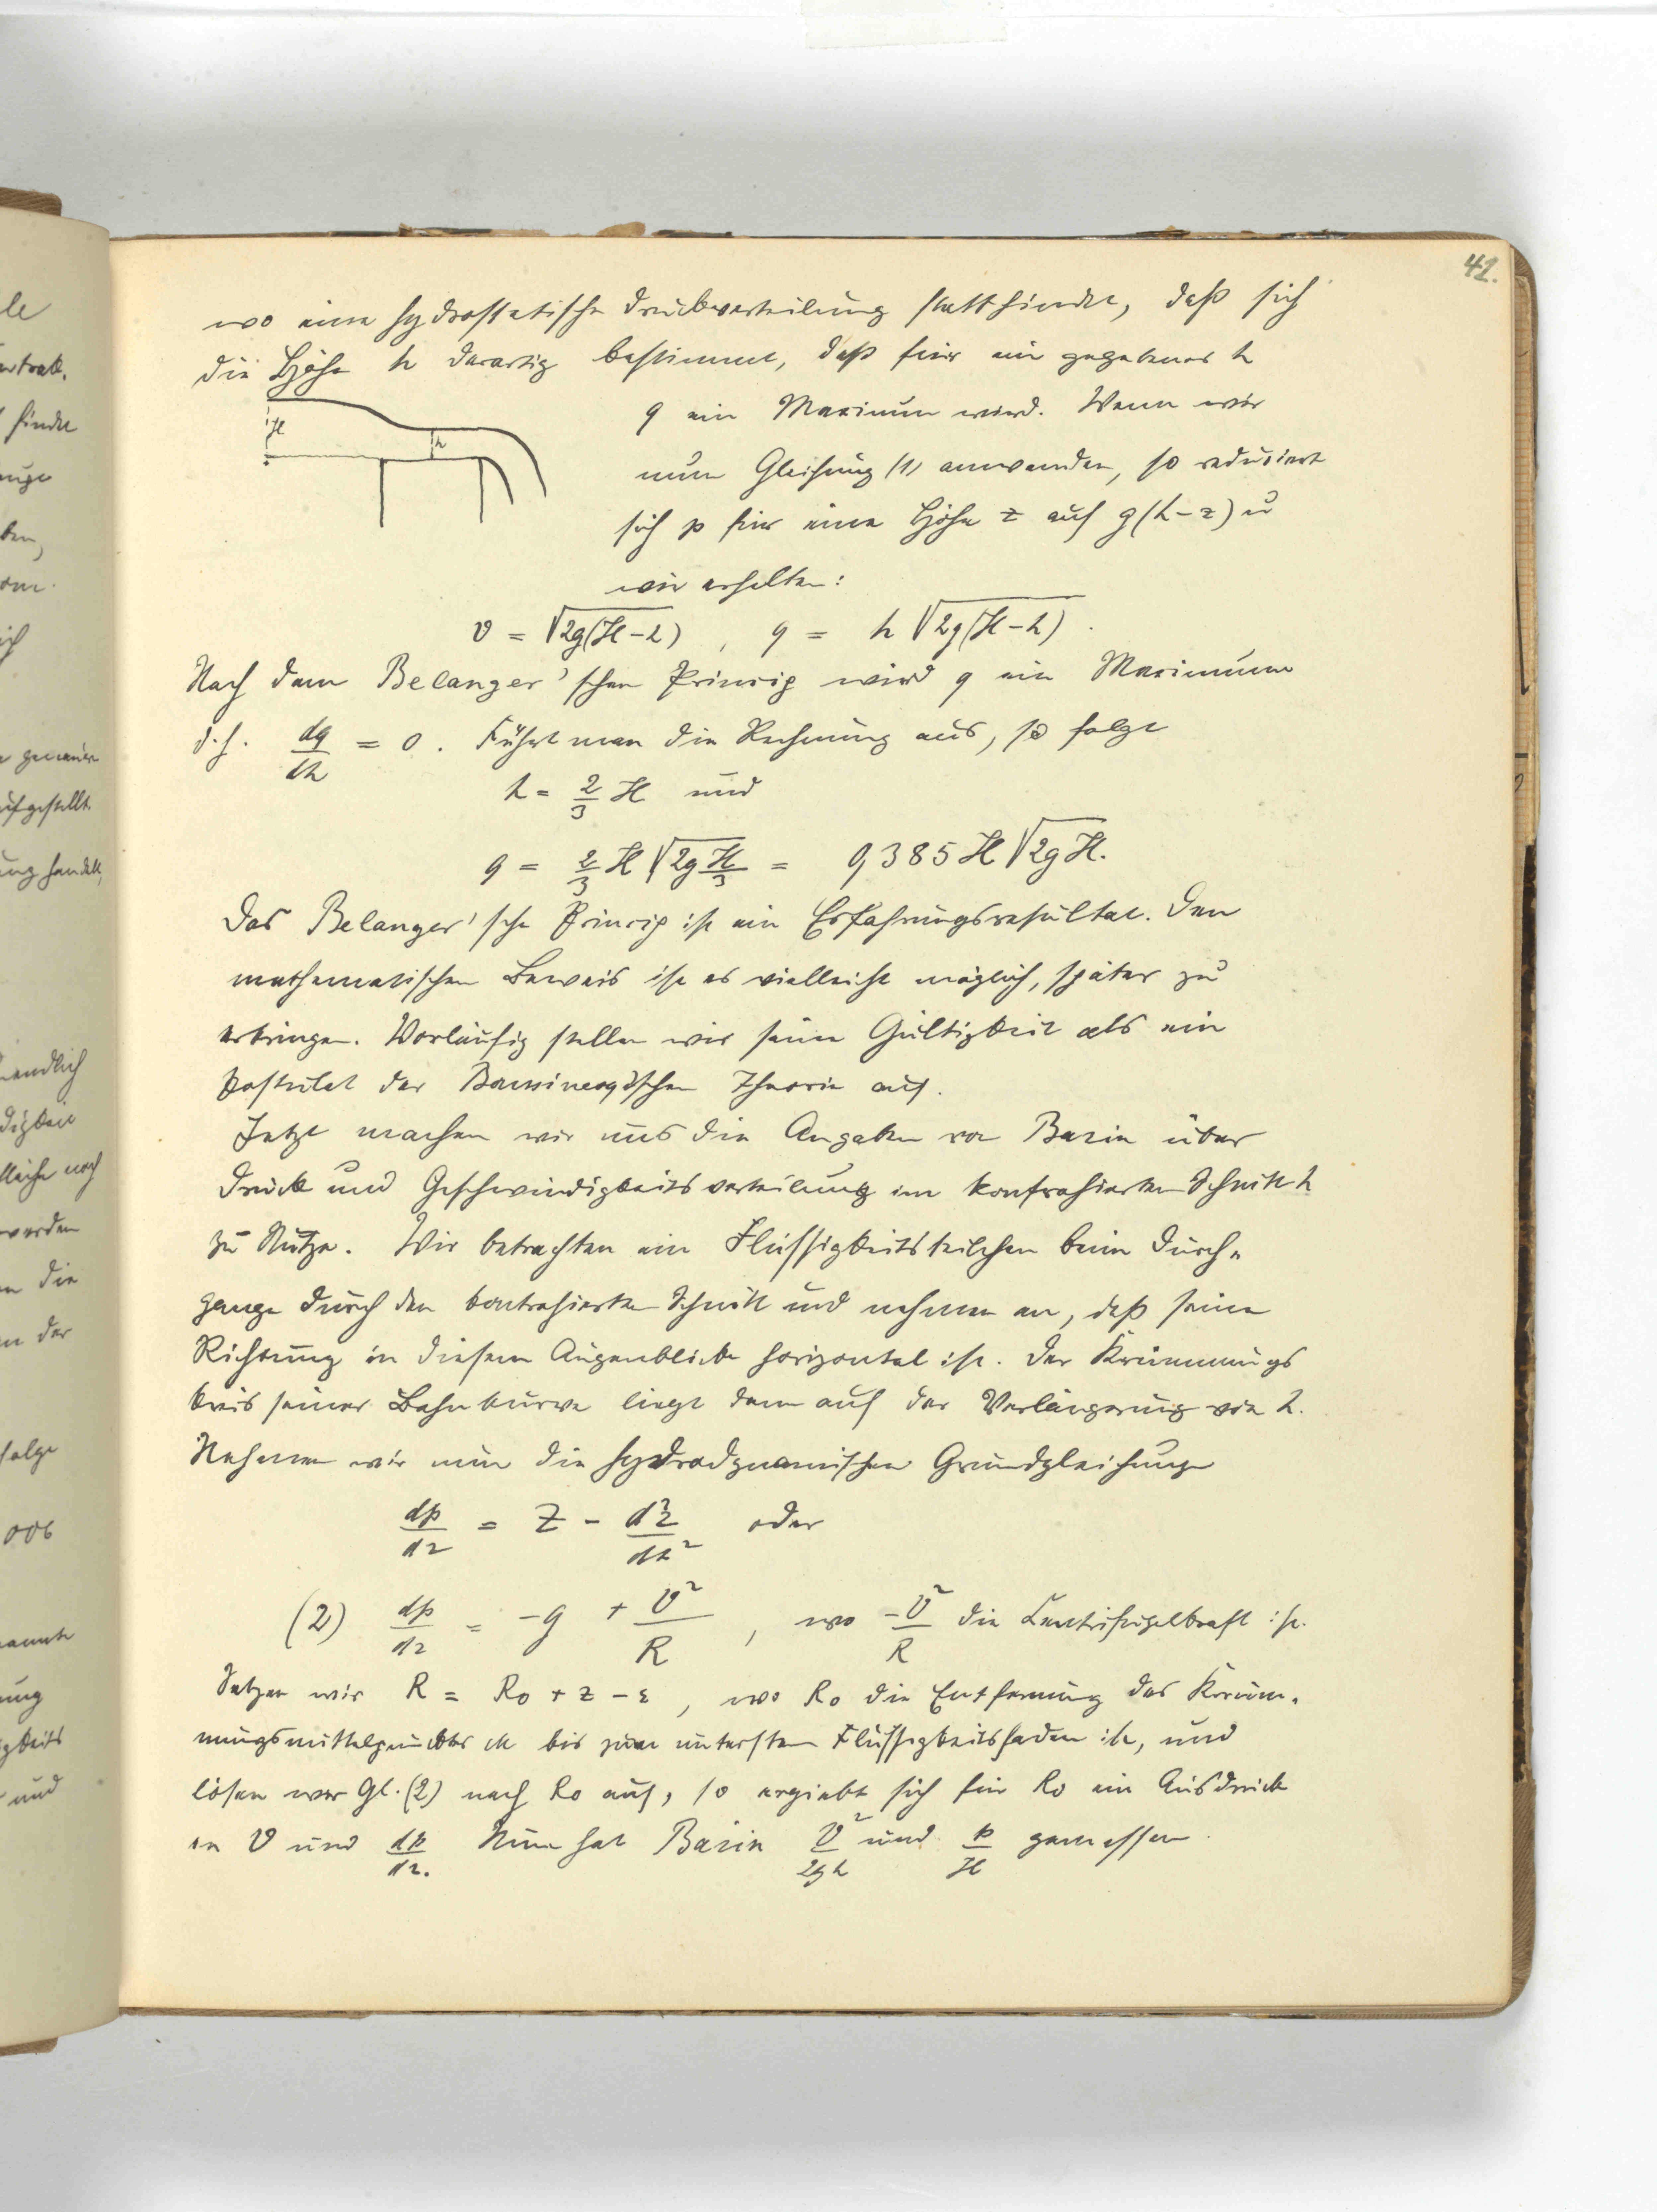 41.
wo eine hydrostatische Druckverteilung stattfindet, daß sich
die Höhe h derartig bestimmt, daß für ein gegebenes h
q ein Maximum wird. Wenn wir
nun Gleichung (1) anwenden, so reduciert
sich p für eine Höhe z auf g(h-z) u
wir erhalten:
H h
v = √2g(H-h) , q = h √2g(H-h) .
Nach dem Belanger'schen Princip wird q ein Maximum
d.h. dq/dh = 0. Führt man die Rechnung aus, so folgt
h = 2/3 H und
q = 2/3 H √2g H/3 = 0,385 H √2gH.
Das Belanger'sche Princip ist ein Erfahrungsresultat. Den
mathematischen Beweis ist es vielleicht möglich, später zu
erbringen. Vorläufig stellen wir seine Gültigkeit als ein
Postulat der Boussinesq'schen Theorie auf.
Jetzt machen wir uns die Angaben von Bazin über
Druck und Geschwindigkeitsverteilung im kontrahierten Schnitt h
zu Nutze. Wir betrachten ein Flüssigkeitsteilchen beim Durch-
gange durch den kontrahierten Schnitt und nehmen an, daß seine
Richtung in diesem Augenblicke horizontal ist. Der Krümmungs
kreis seiner Bahnkurve liegt dann auf der Verlängerung von h.
Nehmen wir nun die hydrodynamischen Grundgleichungen
dp/dz = Z - d²z/dt² oder
(2) dp/dz = -g + v²/R , wo -v²/R die Centrifugalkraft ist.
Setzen wir R = R0 + z - ε , wo R0 die Entfernung des Krüm-
mungsmittelpunktes M bis zum untersten Flüssigkeitsfaden ist, und
lösen wir Gl. (2) nach R0 auf, so ergiebt sich für R0 ein Ausdruck
in v und dp/dz. Nun hat Bazin v²/2gh und p/H gemessen.